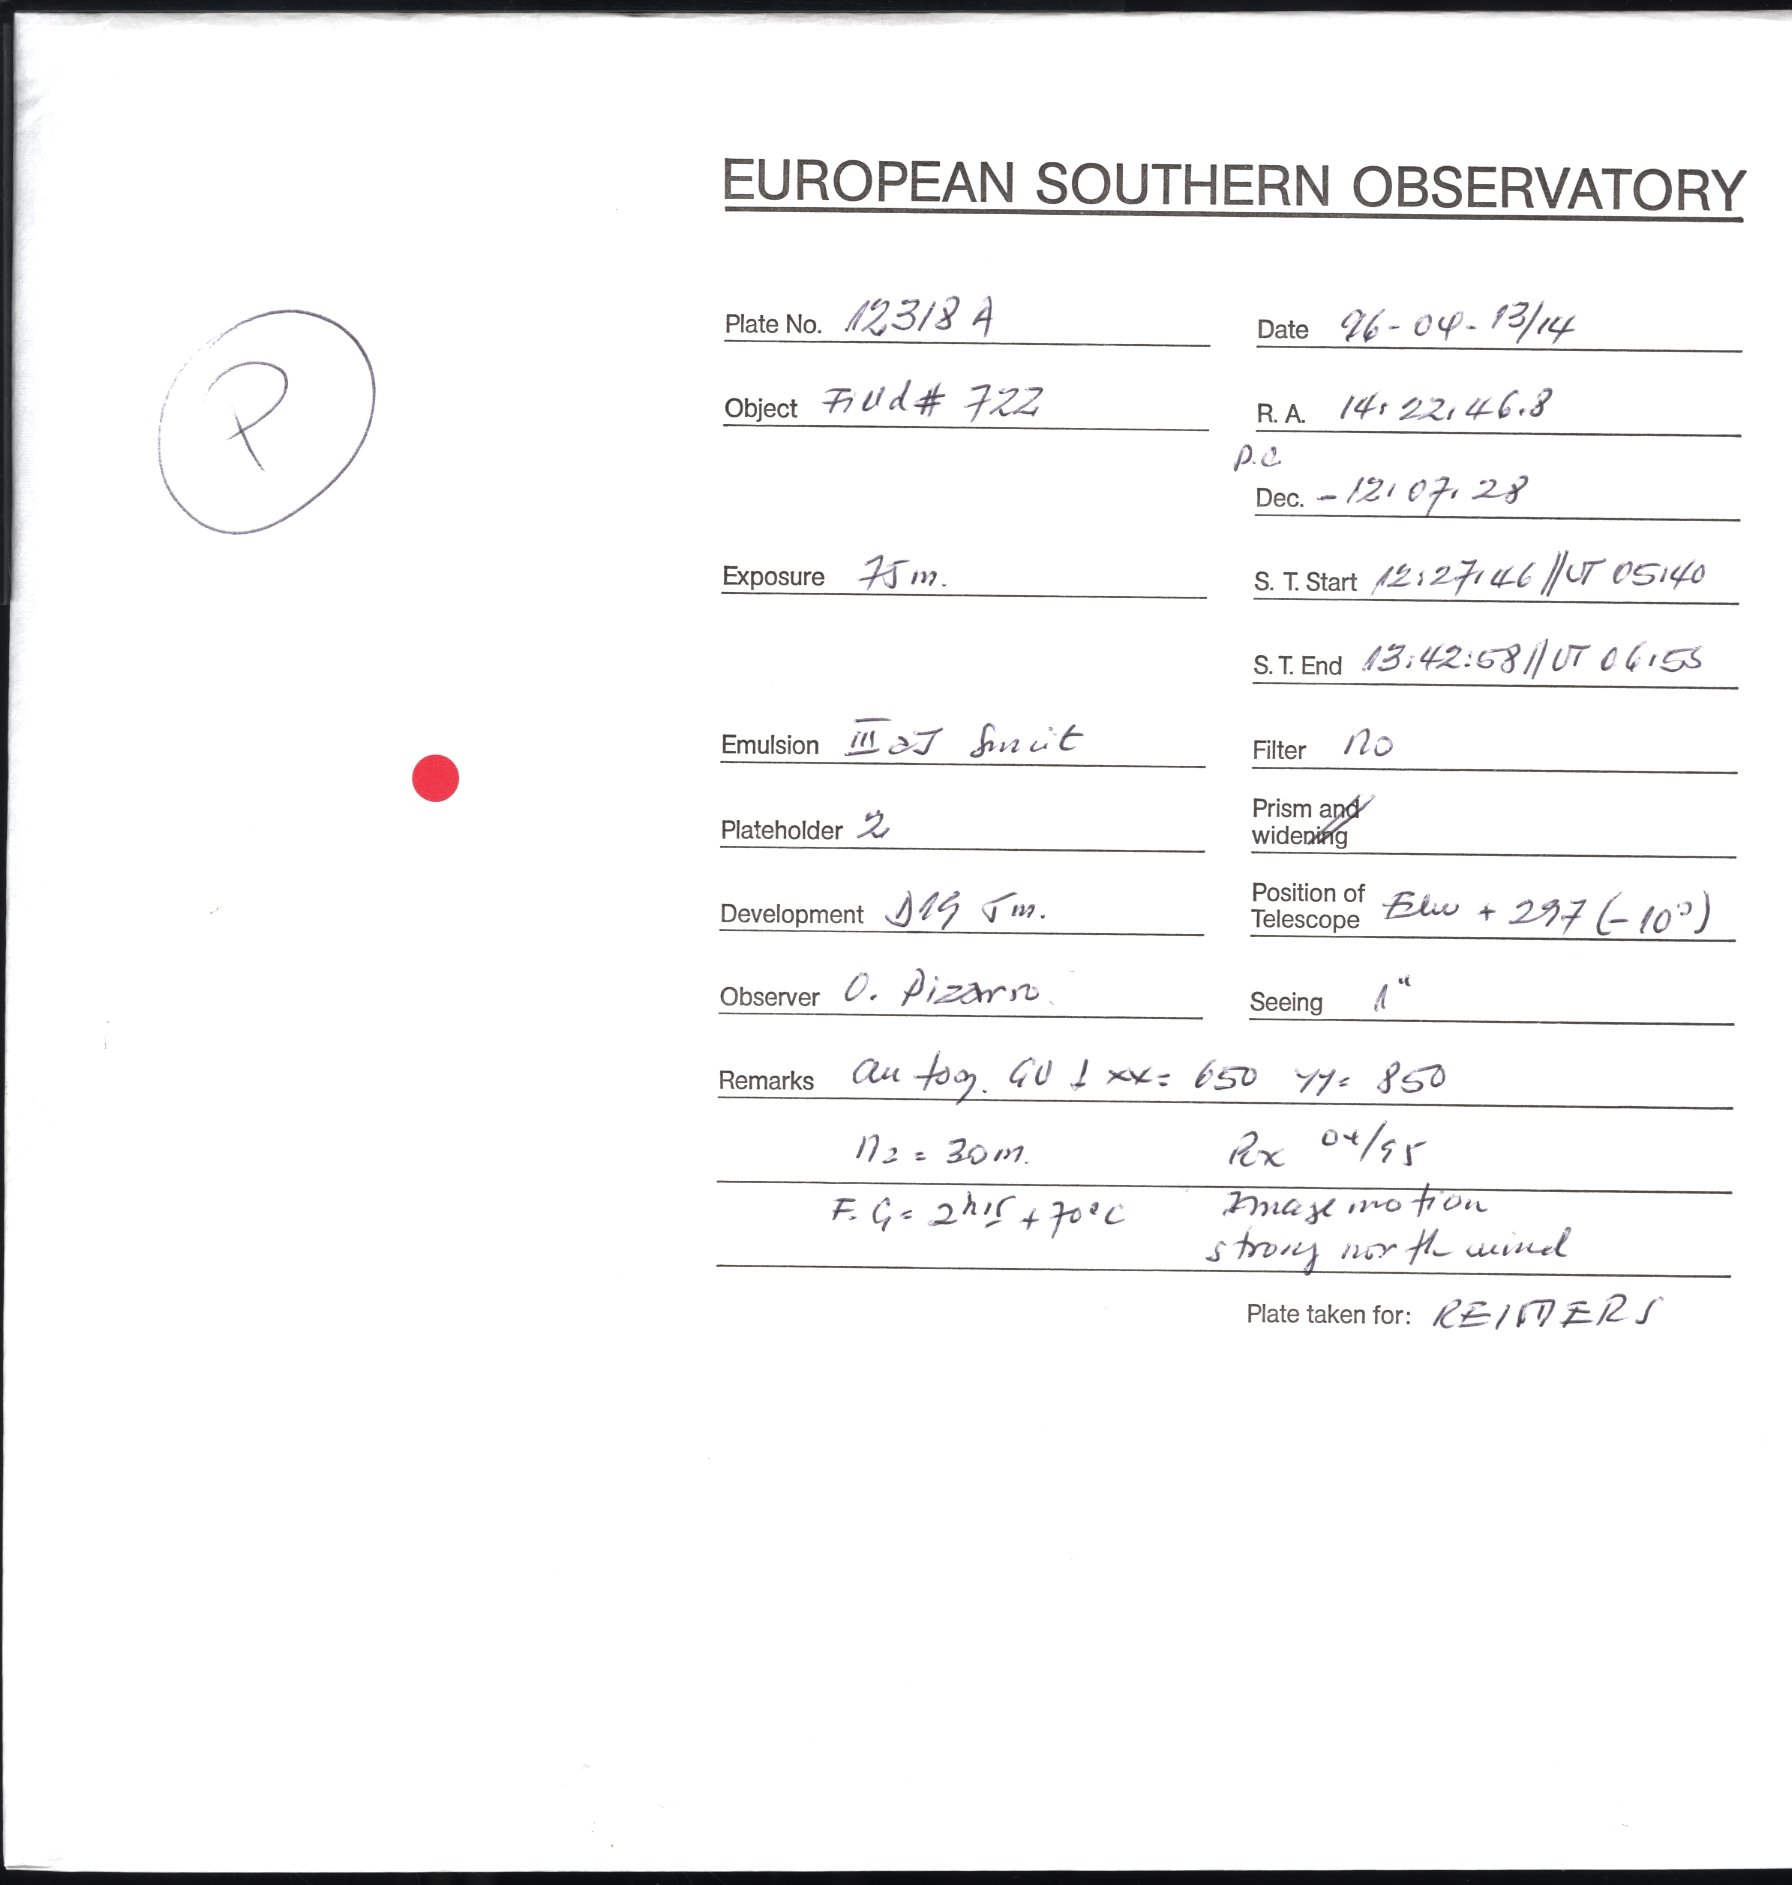 EUROPEAN SOUTHERN OBSERVATORY
P
Plate No. 12318 A
Date 96-04-13/14
Object Field # 722
R. A. 14:22:46.8
p.c.
Dec. -12:07:28
Exposure 75m.
S. T. Start 12:27:46 // UT 05:40
S. T. End 13:42:58 // UT 06:55
Emulsion III aJ
Filter no
Plateholder 2
Prism and
widening
Development D19 5m.
Position of
Telescope + 297 (-10°)
Observer O. Pizarro.
Seeing 1"
Remarks xx= 650 yy= 850
n2 = 30m. Rx 04/95
F.G= 2h15 +70°C Image motion
strong north wind
Plate taken for: REIMERS